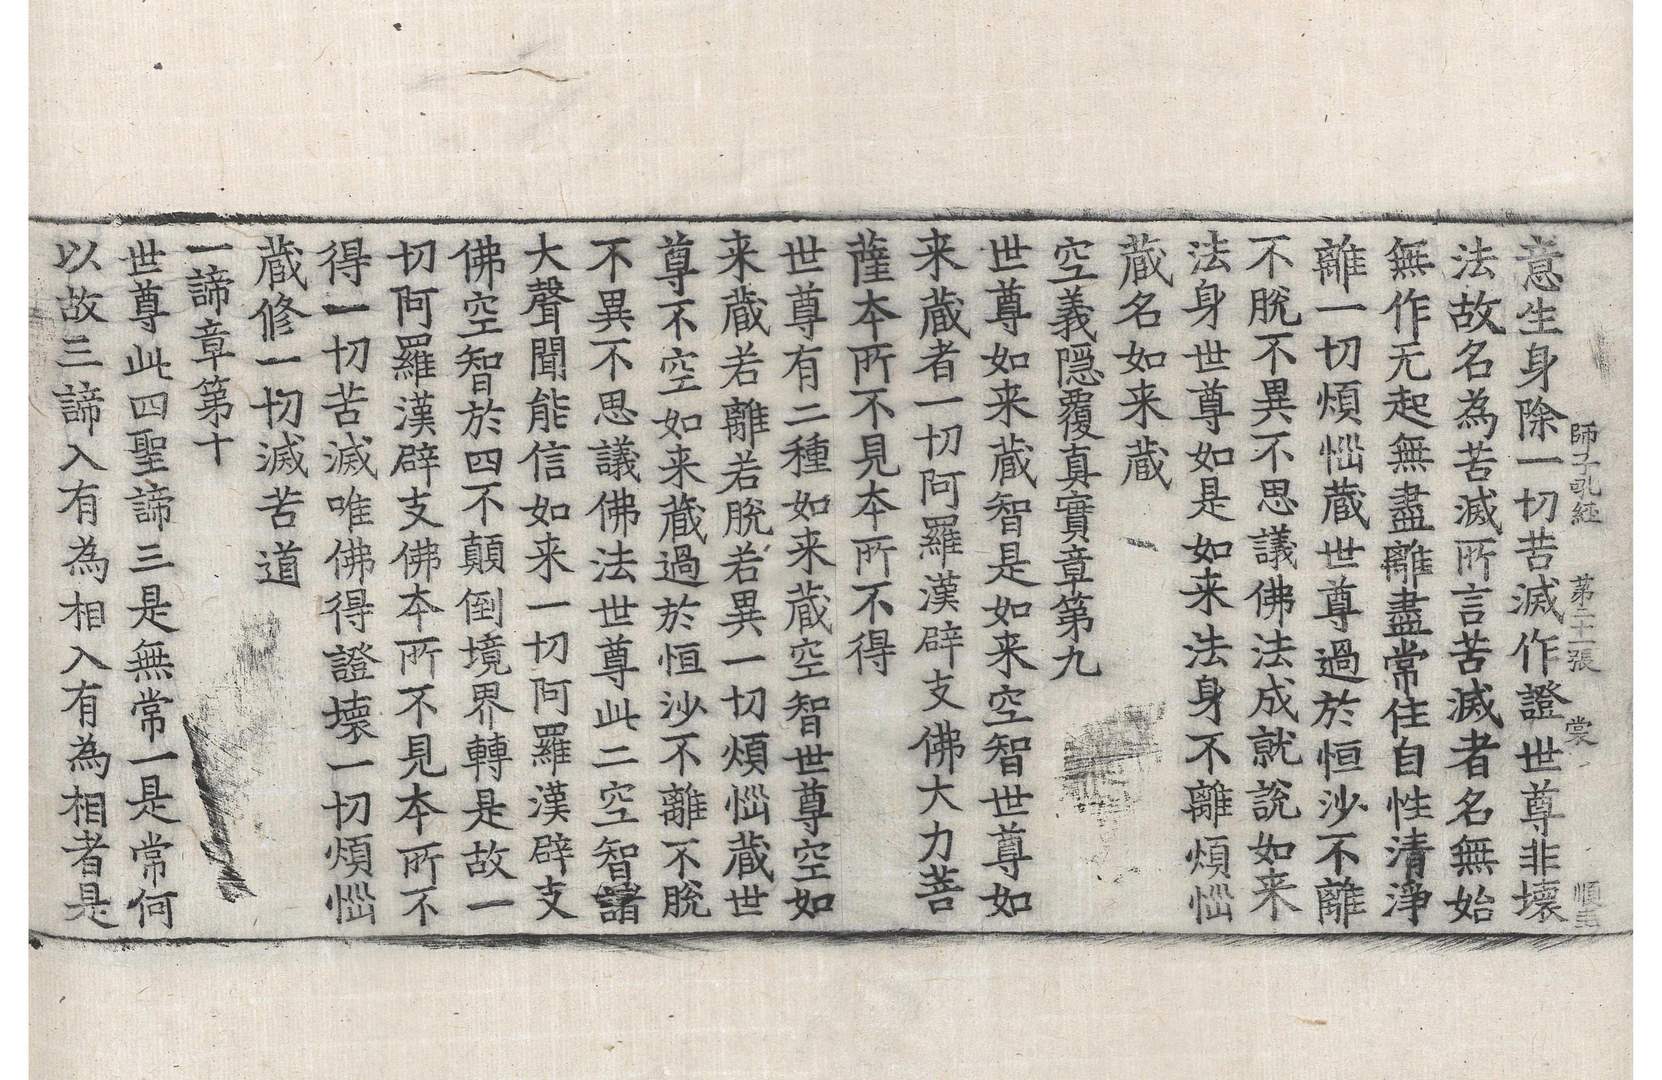 師子吼経 第二十一張 裳
意生身除一切苦滅作證世尊非壞
法故名為苦滅所言苦滅者名無始
無作无起無盡離盡常住自性清淨
離一切煩惱蔵世尊過於恒沙不離
不脫不異不思議佛法成就說如来
法身世尊如是如来法身不離煩惱
蔵名如来蔵
空義隠覆真實章第九
世尊如来蔵智是如来空智世尊如
来蔵者一切阿羅漢辟支佛大力菩
薩本所不見本所不得
世尊有二種如来蔵空智世尊空如
来蔵若離若脫若異一切煩惱蔵世
尊不空如来蔵過於恒沙不離不脫
不異不思議佛法世尊此二空智諸
大聲聞能信如来一切阿羅漢辟支
佛空智於四不顛倒境界轉是故一
切阿羅漢辟支佛本所不見本所不
得一切苦滅唯佛得證壞一切煩惱
蔵修一切滅苦道
一諦章第十
世尊此四聖諦三是無常一是常何
以故三諦入有為相入有為相者是